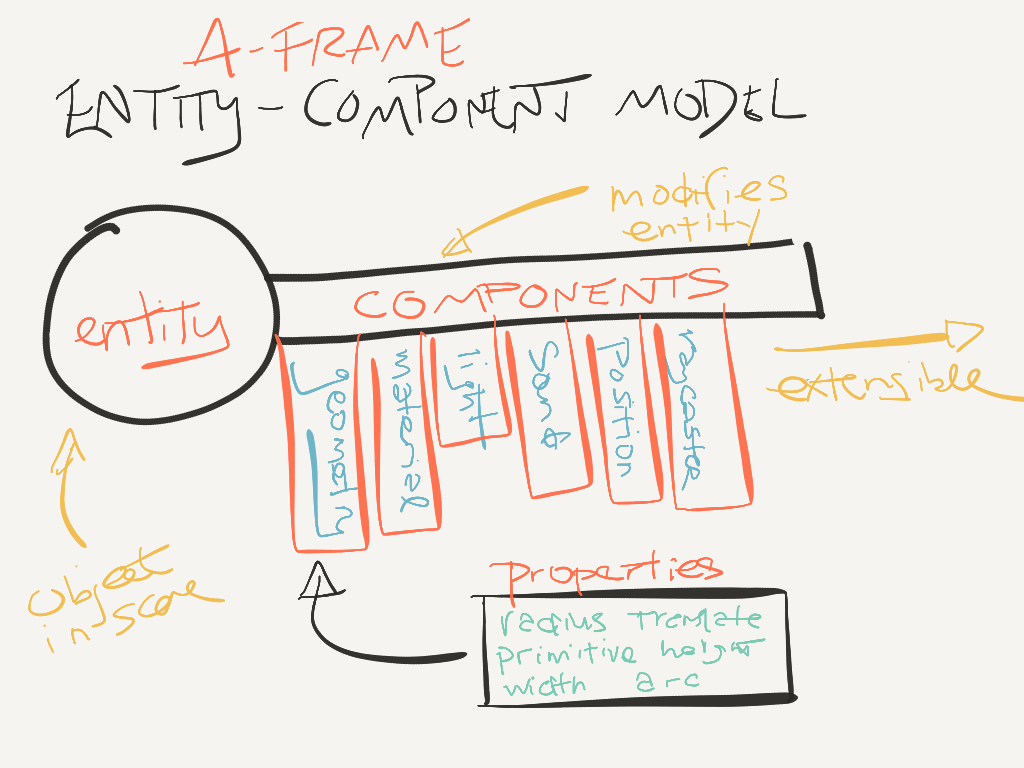 A-FRAME
ENTITY-COMPONENT MODEL
modifies
entity
COMPONENTS
entity
extensible
geometry
material
light
Sound
Position
raycaster
object
in scene
properties
radius translate
primitive height
width arc